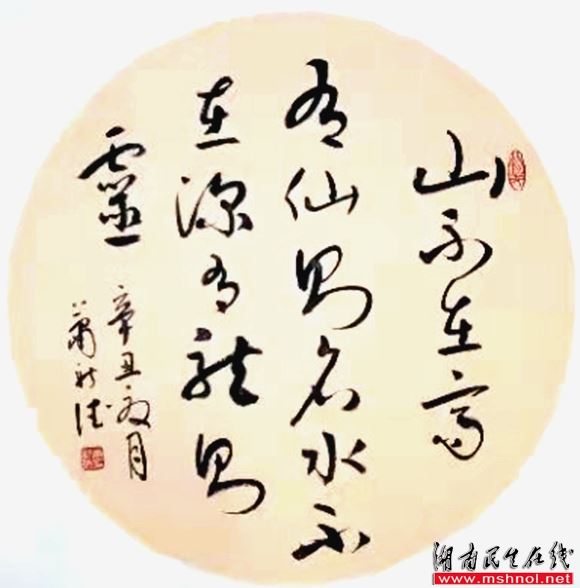 山不在高
有仙则名水不
在深有龙则
灵
辛丑夏月
萧新德
湖南民生在线
www.mshnol.net